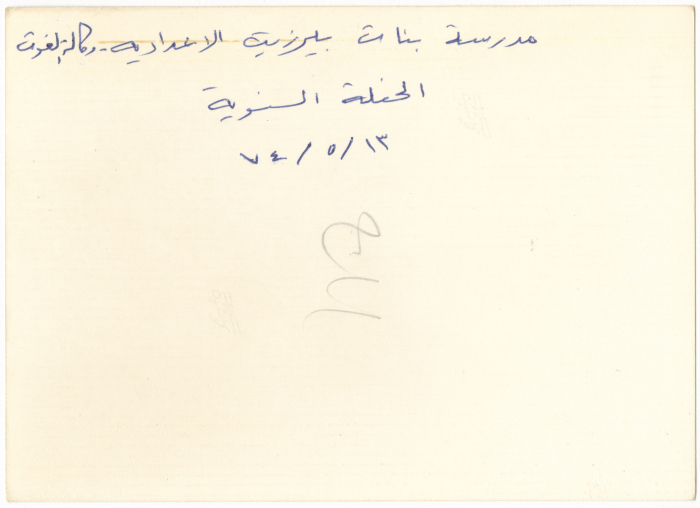 مدرسة بنات بيرزيت الاعدادية - وكالة الغوث
الحفلة السنوية
١٣/ ٥/ ٧٤